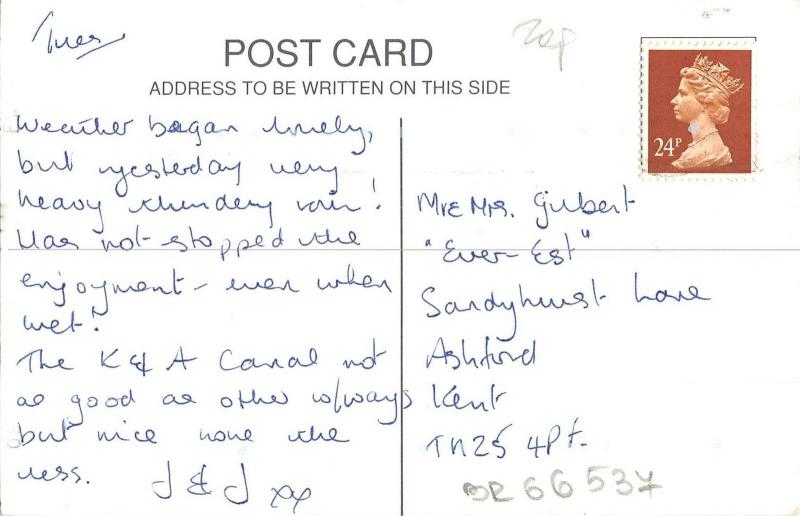 Tues
20p
POST CARD
ADDRESS TO BE WRITTEN ON THIS SIDE
24P
Weather began lovely,
but yesterday very
heavy thundery rain!
Has not stopped the
enjoyment - even when
wet!
The K & A Canal not
as good as other w/ways
but nice none the
less.
J & J xx
Mr & Mrs. Gilbert
"Ever-Est"
Sandyhurst Lane
Ashford
Kent
TN25 4Pt.
BR66537